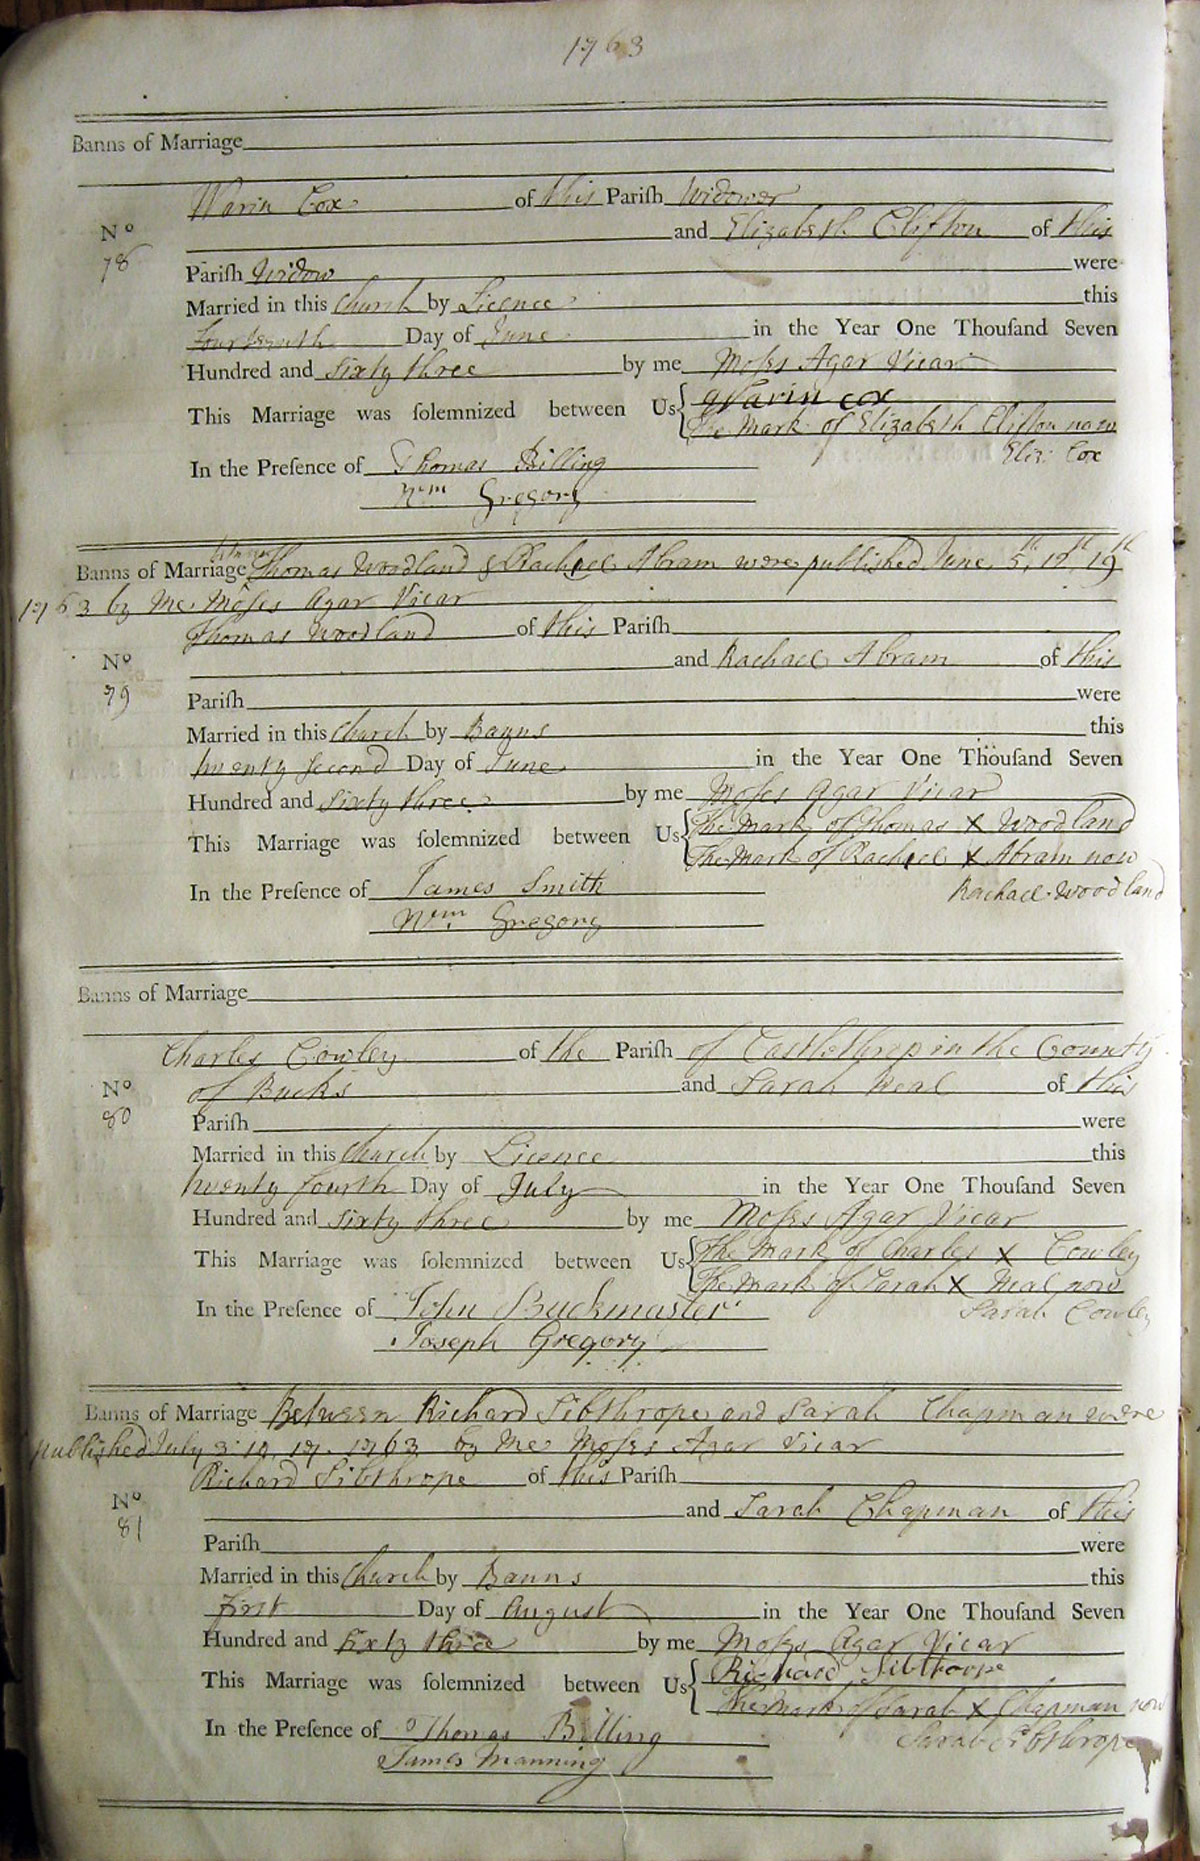 1763
Banns of Marriage
Warin Cox of this Pariſh Widower
No and Elizabeth Clifton of this
78 Pariſh Widow were
Married in this Church by Licence this
fourteenth Day of June in the Year One Thouſand Seven
Hundred and Sixty three by me Moſes Agar Vicar
This Marriage was ſolemnized between Us Warin cox
The Mark of Elizabeth Clifton now
Eliz: Cox
In the Preſence of Thomas Billing
Wm Gregory
Banns of Marriage between Thomas Woodland & Rachael Abram were published June 5th, 12th, 19th
1763 by Me Moſes Agar Vicar
Thomas Woodland of this Pariſh
No and Rachael Abram of this
79 Pariſh were
Married in this Church by Banns this
twenty second Day of June in the Year One Thouſand Seven
Hundred and Sixty three by me Moſes Agar Vicar
This Marriage was ſolemnized between Us The Mark of Thomas X Woodland
The Mark of Rachael X Abram now
Rachael Woodland
In the Preſence of James Smith
Wm. Gregory
Banns of Marriage
Charles Cowley of the Pariſh of Castlethrop in the County
No of Bucks and Sarah Neal of this
80 Pariſh were
Married in this Church by Licence this
twenty fourth Day of July in the Year One Thouſand Seven
Hundred and Sixty three by me Moſes Agar Vicar
This Marriage was ſolemnized between Us The Mark of Charles X Cowley
The Mark of Sarah X Neal now
Sarah Cowley
In the Preſence of John Buckmaster
Joseph Gregory
Banns of Marriage Between Richard Sibthrope and Sarah Chapman were
published July 3, 10, 17. 1763 by Me Moſes Agar Vicar
Richard Sibthrope of this Pariſh
No and Sarah Chapman of this
81 Pariſh were
Married in this Church by Banns this
First Day of August in the Year One Thouſand Seven
Hundred and Sixty three by me Moſes Agar Vicar
This Marriage was ſolemnized between Us Richard Sibthorpe
The Mark of Sarah X Chapman now
Sarah Sibthrope
In the Preſence of Thomas Billing
James Manning